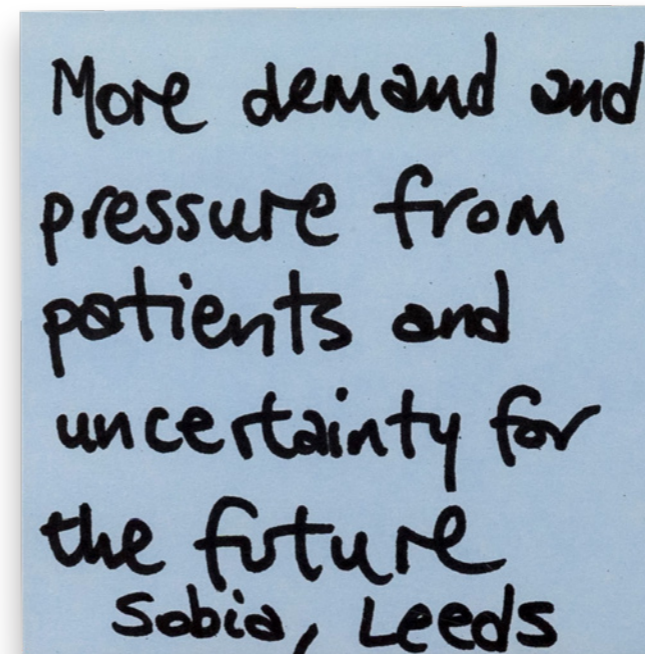 More demand and
pressure from
patients and
uncertainty for
the future
Sobia, Leeds